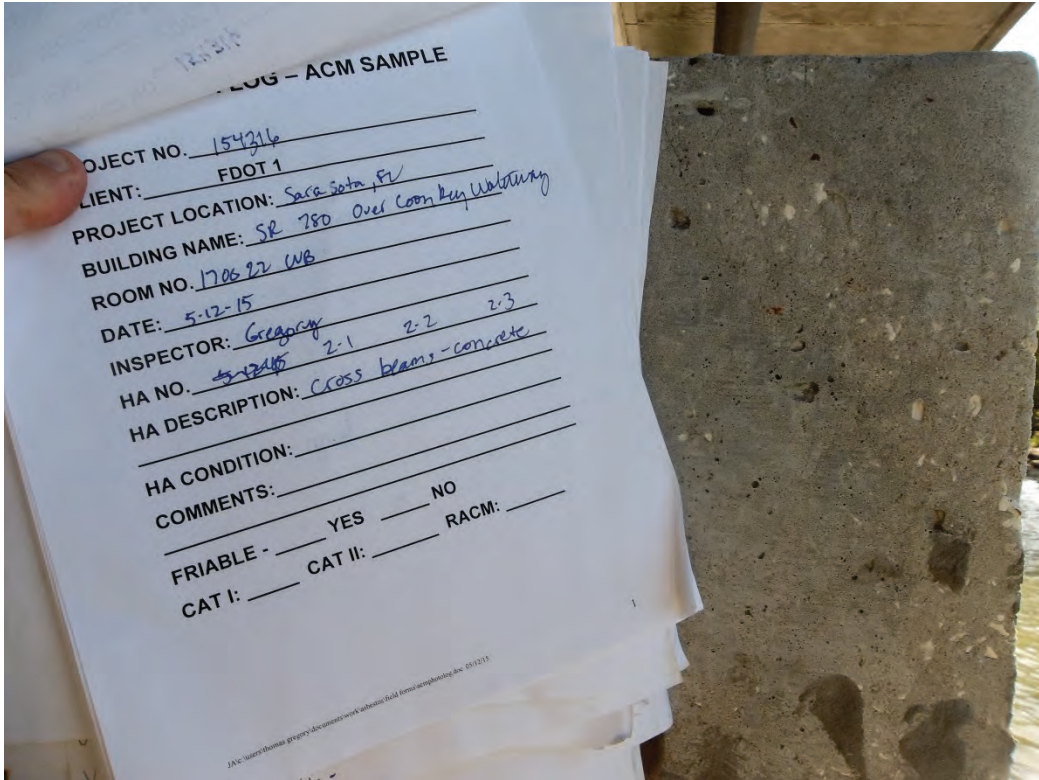 LOG – ACM SAMPLE
OJECT NO. 154316
LIENT: FDOT 1
PROJECT LOCATION: Sarasota, FL
BUILDING NAME: SR 780 Over Coon Key Waterway
ROOM NO. 170022 WB
DATE: 5-12-15
INSPECTOR: Gregory
HA NO. 5-12-15 2-1 2-2 2-3
HA DESCRIPTION: Cross beams - concrete
HA CONDITION:
COMMENTS:
FRIABLE - YES NO
CAT I: CAT II: RACM:
1
JA\c:\users\thomas gregory\documents\work\asbestos\field forms\acmphotolog.doc 05/12/15